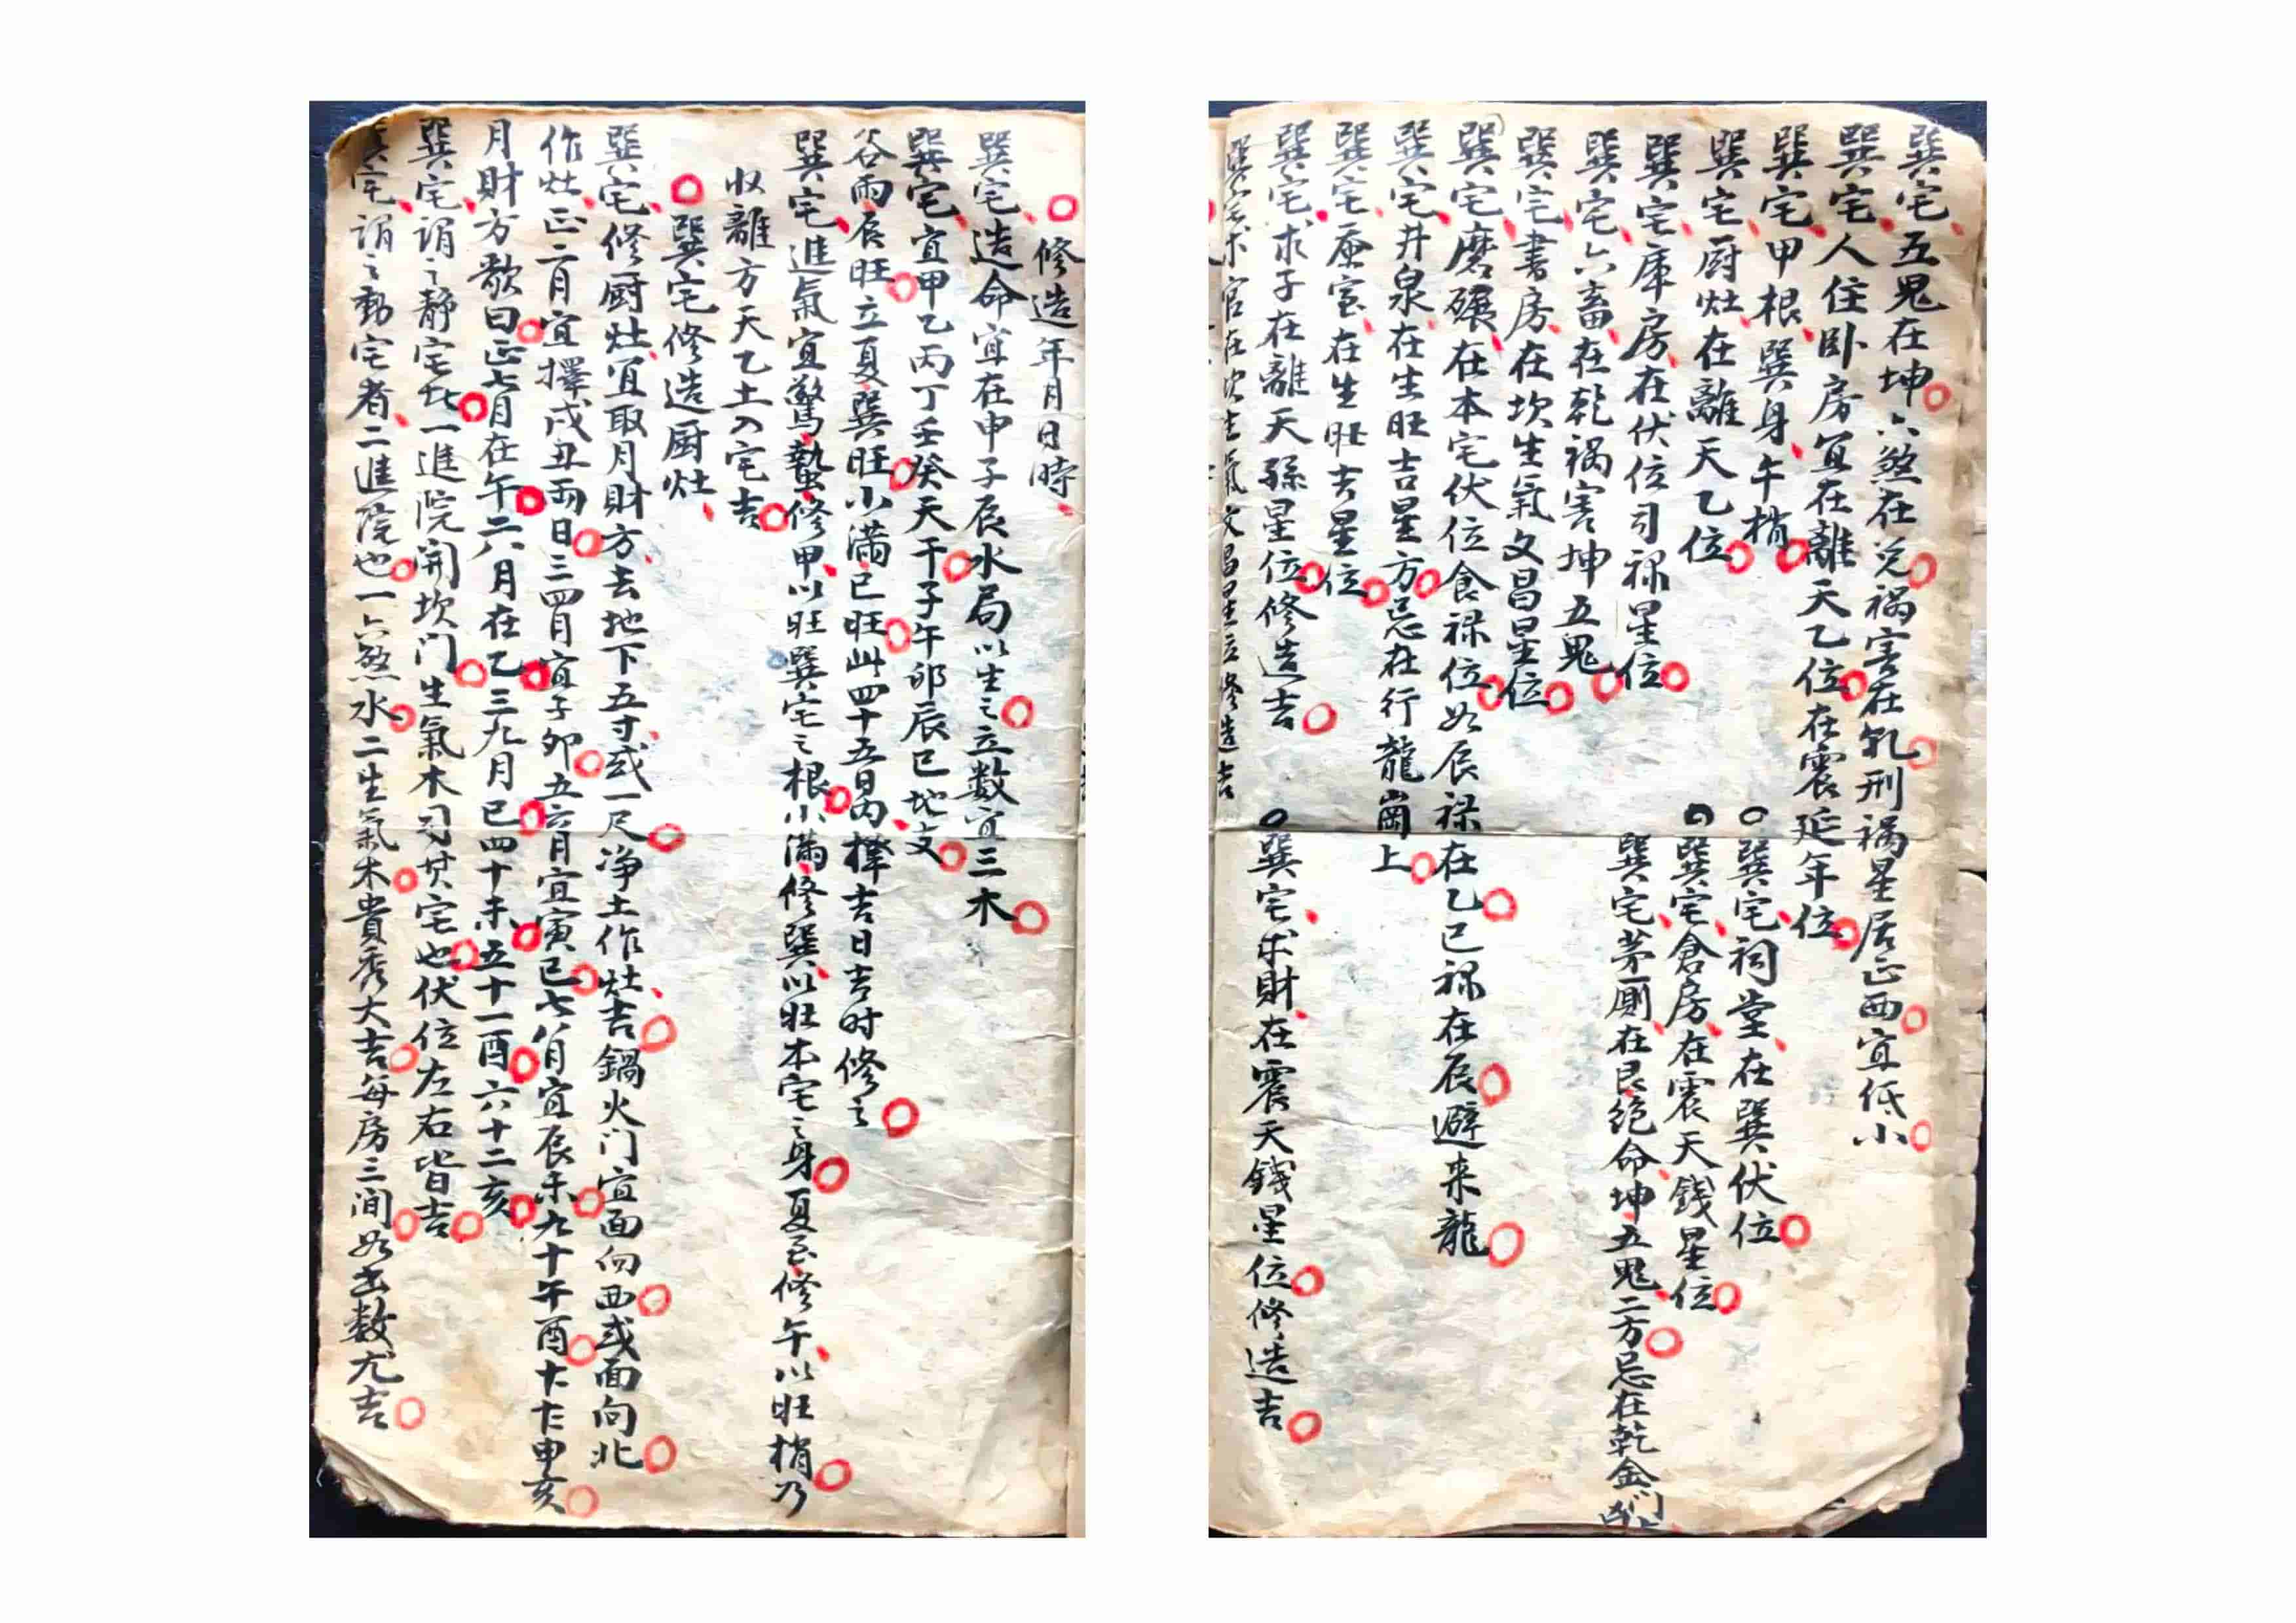 巽宅五鬼在坤六煞在兑禍害在乹刑禍星居正西宜低小
巽宅人住卧房宜在離天乙位在震延年位
巽宅甲根巽身午梢
○巽宅祠堂在巽伏位
巽宅厨灶在離天乙位
○巽宅倉房在震天錢星位
巽宅庫房在伏位司禄星位
巽宅茅厠在艮绝命坤五鬼二方忌在乾金門凶
巽宅六畜在乾禍害坤五鬼
巽宅書房在坎生氣文昌星位
巽宅磨碾在本宅伏位食禄位如辰禄在乙巳禄在辰避来龍
巽宅井泉在生旺吉星方忌在行龍崗上
巽宅蚕室在生旺吉星位
巽宅求子在離天孫星位修造吉
○巽宅求財在震天錢星位修造吉
巽宅求官在坎生氣文昌星位修造吉
○修造年月日時
巽宅造命宜在申子辰水局以生之立数宜三木
巽宅宜甲乙丙丁壬癸天干子午卯辰巳地支
谷雨辰旺立夏巽旺小滿巳旺此四十五日内擇吉日吉时修之
巽宅進氣宜驚蟄修甲以旺巽宅之根小滿修巽以旺本宅之身夏至修午以旺梢乃
収離方天乙土入宅吉
○巽宅修造厨灶
巽宅修厨灶宜取月財方去地下五寸或一尺净土作灶吉鍋火门宜面向西或面向北
作灶正二月宜擇戌丑两日三四月宜子卯五六月宜寅巳七八月宜辰未九十午酉十十申亥
月財方歌曰正七月在午二八月在乙三九月巳四十未五十一酉六十二亥
巽宅谓之静宅此一進院開坎门生氣木司其宅也伏位左右皆吉
巽宅谓之動宅者二進院也一六煞水二生氣木貴秀大吉每房三间如出数尤吉